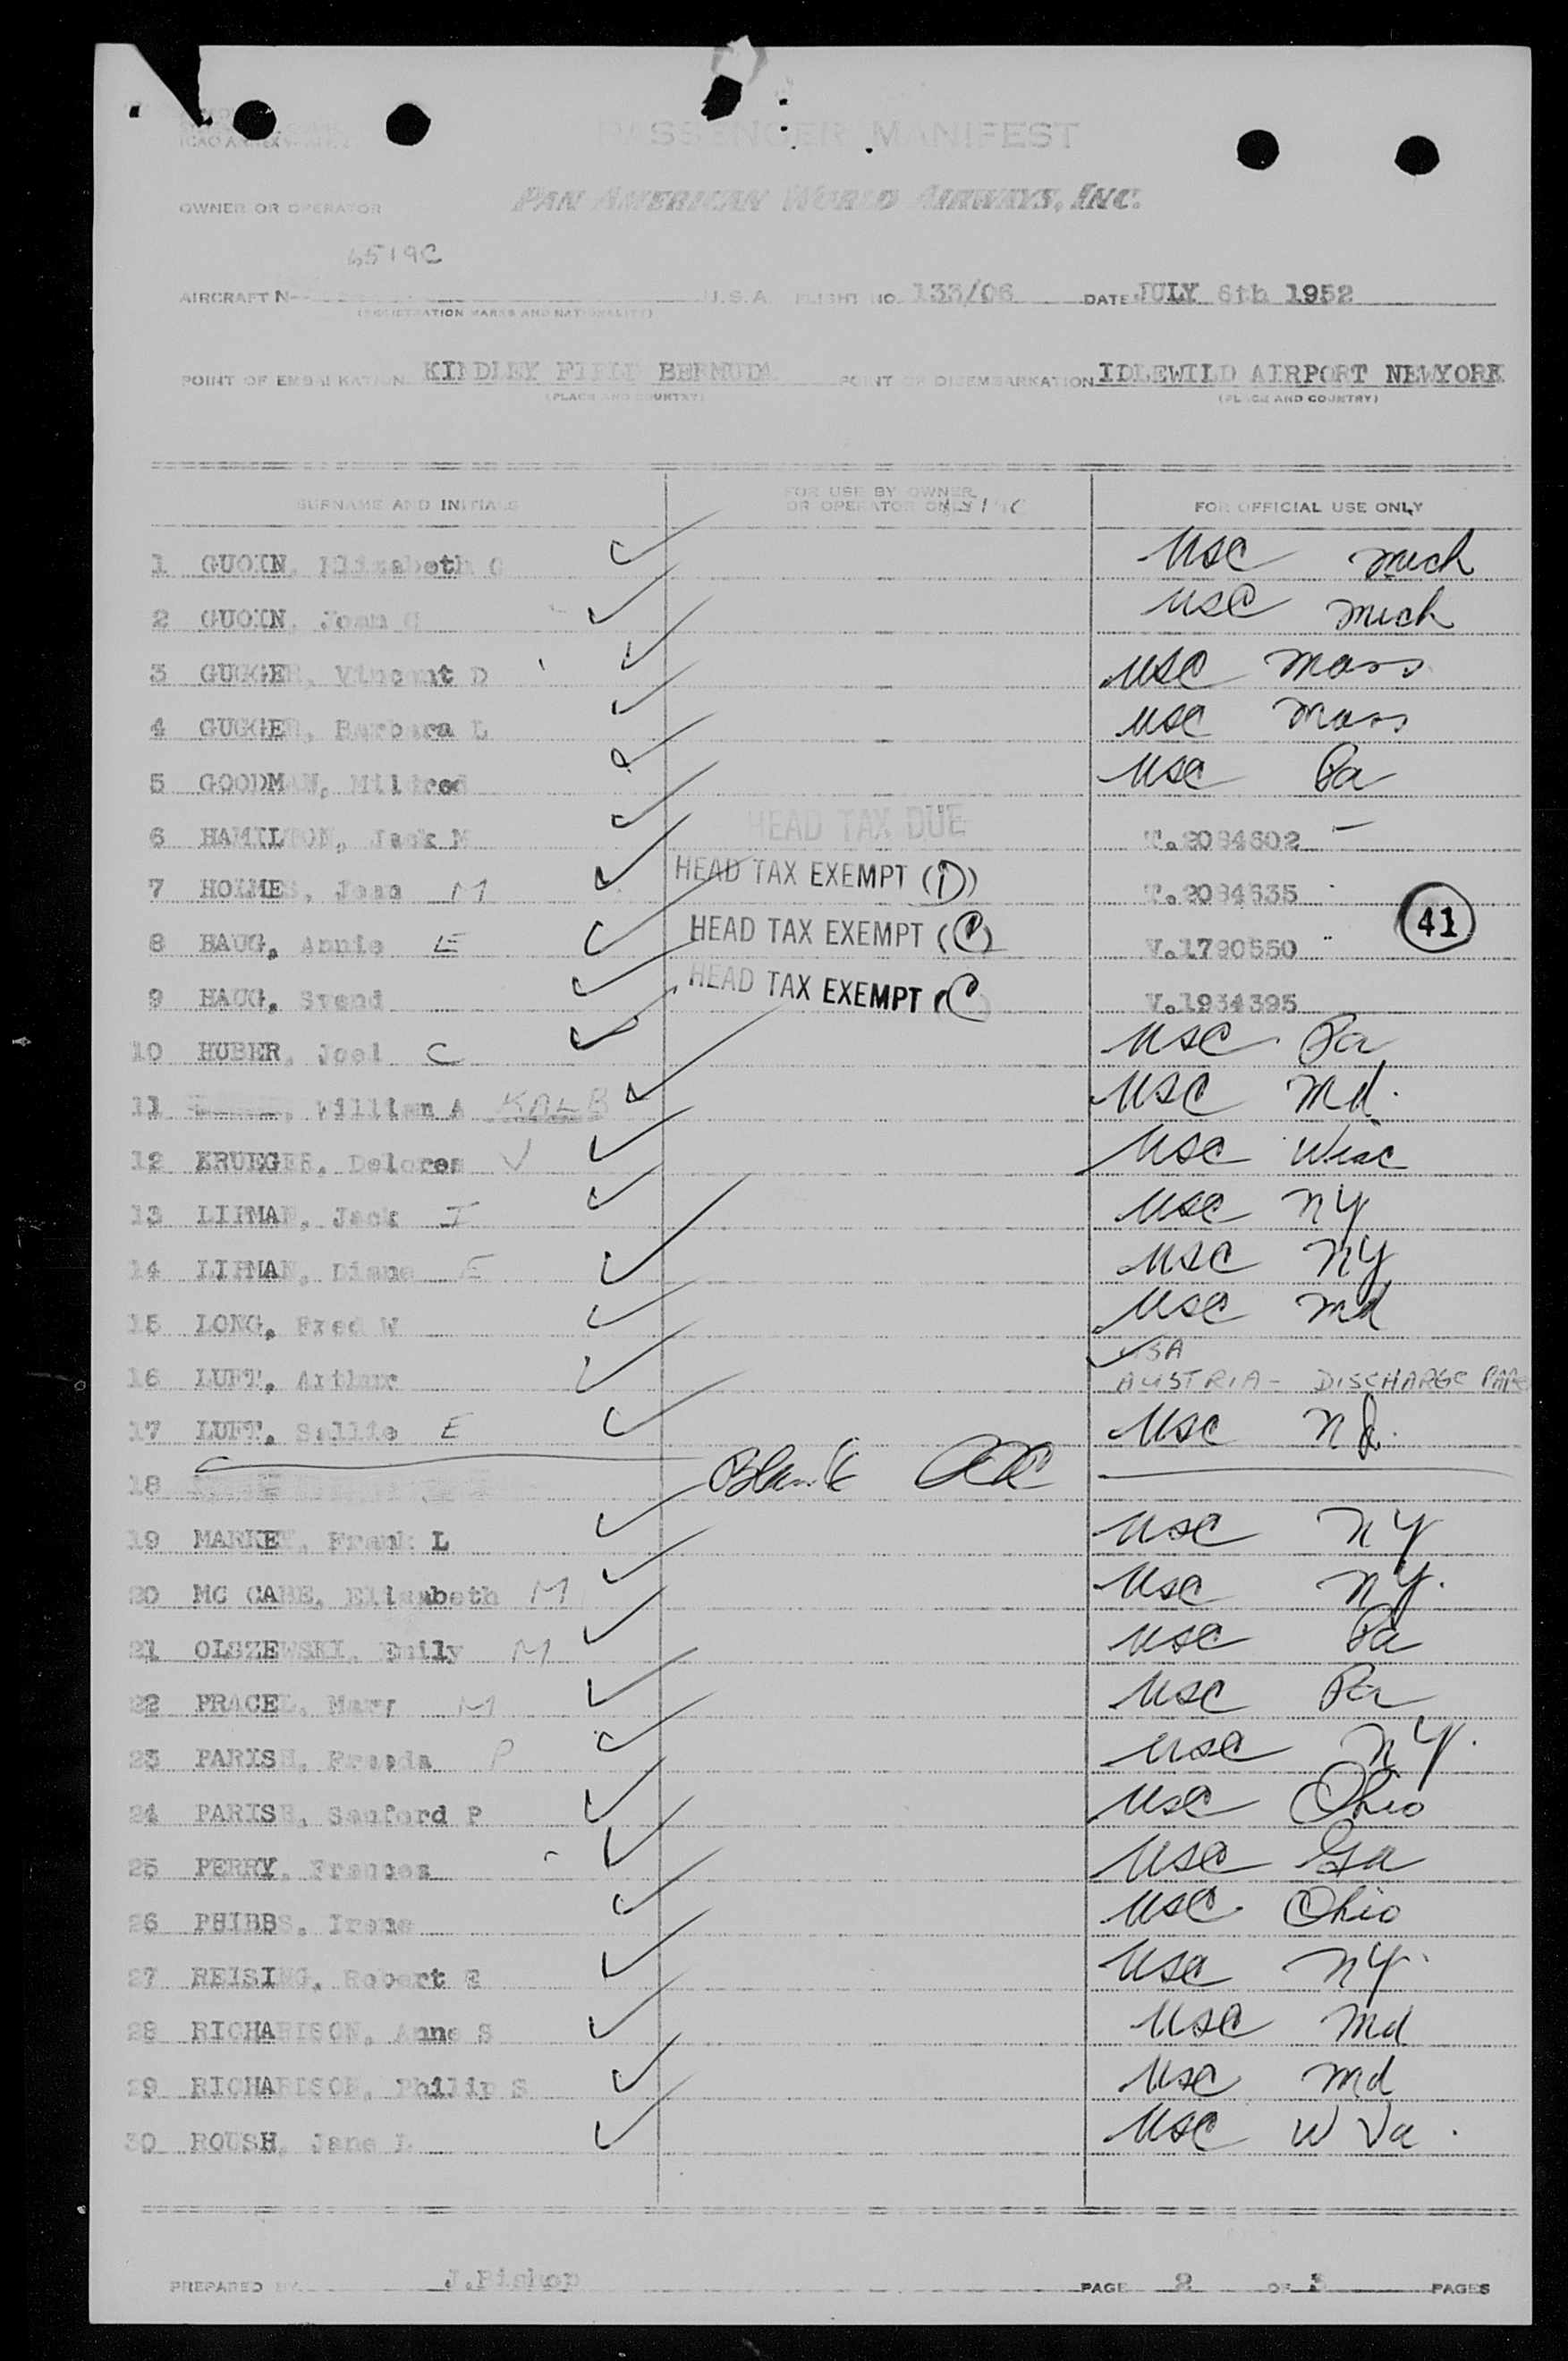 PASSENGER MANIFEST
OWNER OR OPERATOR PAN AMERICAN WORLD AIRWAYS, INC.
6519C
AIRCRAFT N- U.S.A. FLIGHT NO. 133/06 DATE JULY 6th 1952
(REGISTRATION MARKS AND NATIONALITY)
POINT OF EMBARKATION KINDLEY FIELD BERMUDA POINT OF DISEMBARKATION IDLEWILD AIRPORT NEWYORK
(PLACE AND COUNTRY) (PLACE AND COUNTRY)
SURNAME AND INITIALS FOR USE BY OWNER OR OPERATOR ONLY FOR OFFICIAL USE ONLY
1 GUOIN, Elizabeth G USC Mich
2 GUOIN, Joan G USC Mich
3 GUGGER, Vincent D USC Mass
4 GUGGER, Barbara L USC Mass
5 GOODMAN, Mildred USC Pa
6 HAMILTON, Jack M HEAD TAX DUE T.2084602
7 HOLMES, Joan M HEAD TAX EXEMPT (D) T.2084635
8 HAUG, Annie E HEAD TAX EXEMPT (C) V.1790550
41
9 HAUG, Svend HEAD TAX EXEMPT (C) V.1934395
10 HUBER, Joel C USC Pa
11 William A KALB USC Md.
12 KRUEGER, Delores V USC Wisc
13 LIPMAN, Jack I USC NY
14 LIPMAN, Diane E USC NY
15 LONG, Fred W USC Md
16 LUFT, Arthur USA AUSTRIA - DISCHARGE PAPE
17 LUFT, Sallie E USC NJ.
18 Blank
19 MARKET, Frank L USC NY
20 MC CABE, Elizabeth M USC NY.
21 OLSZEWSKI, Emily M USC Pa
22 PRACEL, Mary M USC Pa
23 PARISH, Freeda P USC NY.
24 PARISH, Sanford P USC Ohio
25 PERRY, Frances USC Ga
26 PHIBBS, Irene USC Ohio
27 REISING, Robert E USC NY.
28 RICHARDSON, Anne S USC Md
29 RICHARDSON, Philip S USC Md
30 ROUSH, Jane L USC W Va.
PREPARED BY J.Bishop PAGE 2 OF 3 PAGES